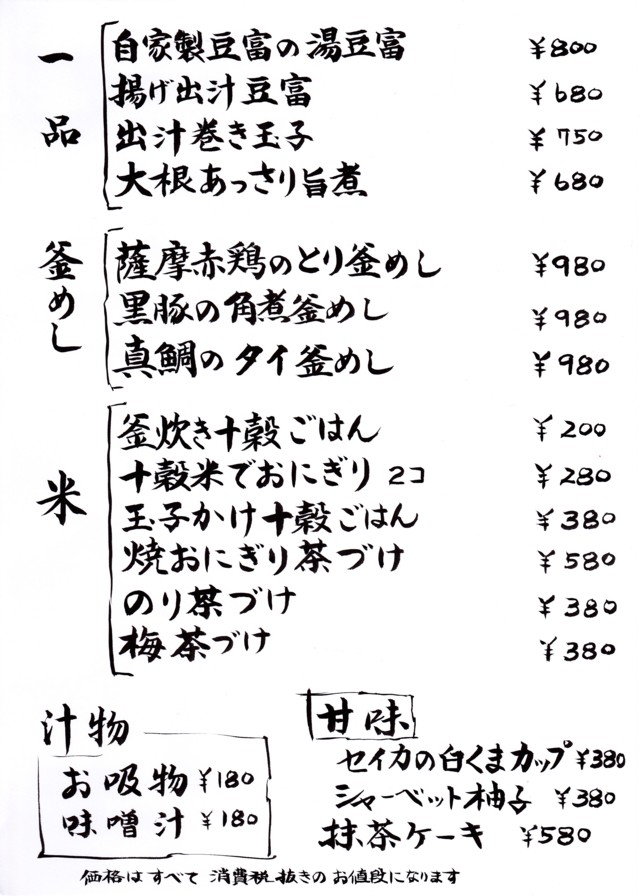 一品
自家製豆富の湯豆富 ¥800
揚げ出汁豆富 ¥680
出汁巻き玉子 ¥750
大根あっさり旨煮 ¥680
釜めし
薩摩赤鶏のとり釜めし ¥980
黒豚の角煮釜めし ¥980
真鯛のタイ釜めし ¥980
米
釜炊き十穀ごはん ¥200
十穀米でおにぎり 2コ ¥280
玉子かけ十穀ごはん ¥380
焼おにぎり茶づけ ¥580
のり茶づけ ¥380
梅茶づけ ¥380
汁物
お吸物 ¥180
味噌汁 ¥180
甘味
セイカの白くまカップ ¥380
シャーベット柚子 ¥380
抹茶ケーキ ¥580
価格はすべて消費税抜きのお値段になります